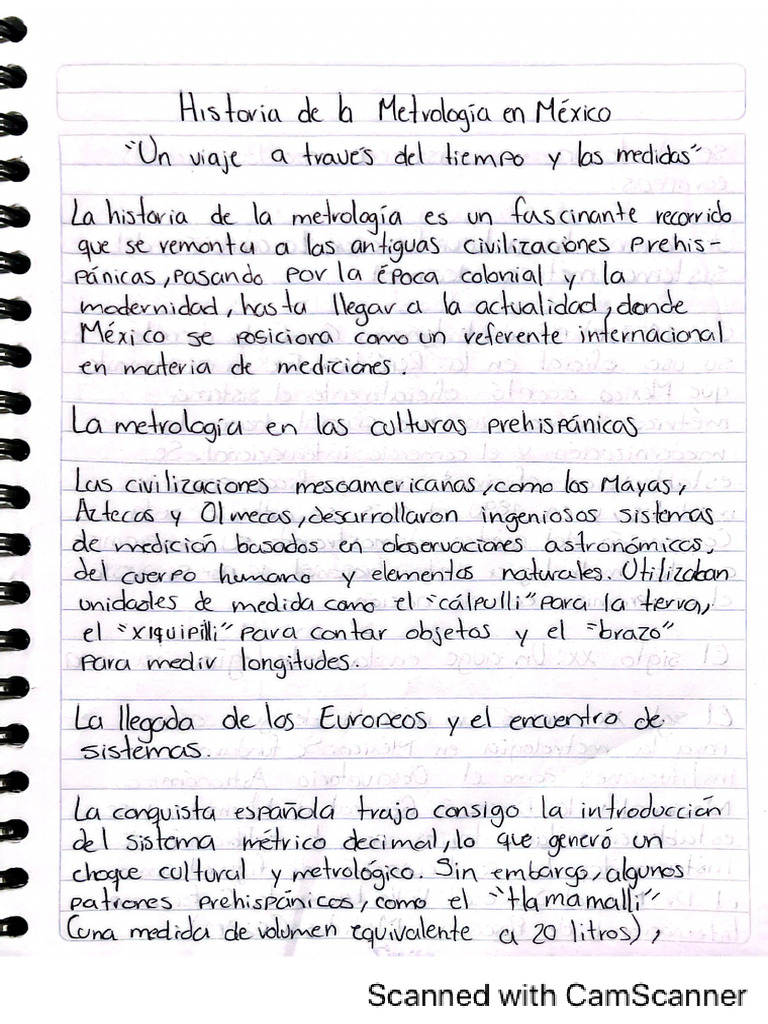 Historia de la Metrología en México
"Un viaje a través del tiempo y las medidas"
La historia de la metrología es un fascinante recorrido
que se remonta a las antiguas civilizaciones prehis-
pánicas, pasando por la época colonial y la
modernidad, hasta llegar a la actualidad, donde
México se posiciona como un referente internacional
en materia de mediciones.
La metrología en las culturas prehispánicas
Las civilizaciones mesoamericanas, como los Mayas,
Aztecas y Olmecas, desarrollaron ingeniosos sistemas
de medición basados en observaciones astronómicas,
del cuerpo humano y elementos naturales. Utilizaban
unidades de medida como el "cálpulli" para la tierra,
el "xiquipilli" para contar objetos y el "brazo"
para medir longitudes.
La llegada de los Europeos y el encuentro de
sistemas.
La conquista española trajo consigo la introducción
del sistema métrico decimal, lo que generó un
choque cultural y metrológico. Sin embargo, algunos
patrones prehispánicos, como el "tlamamalli"
(una medida de volumen equivalente a 20 litros),
Scanned with CamScanner